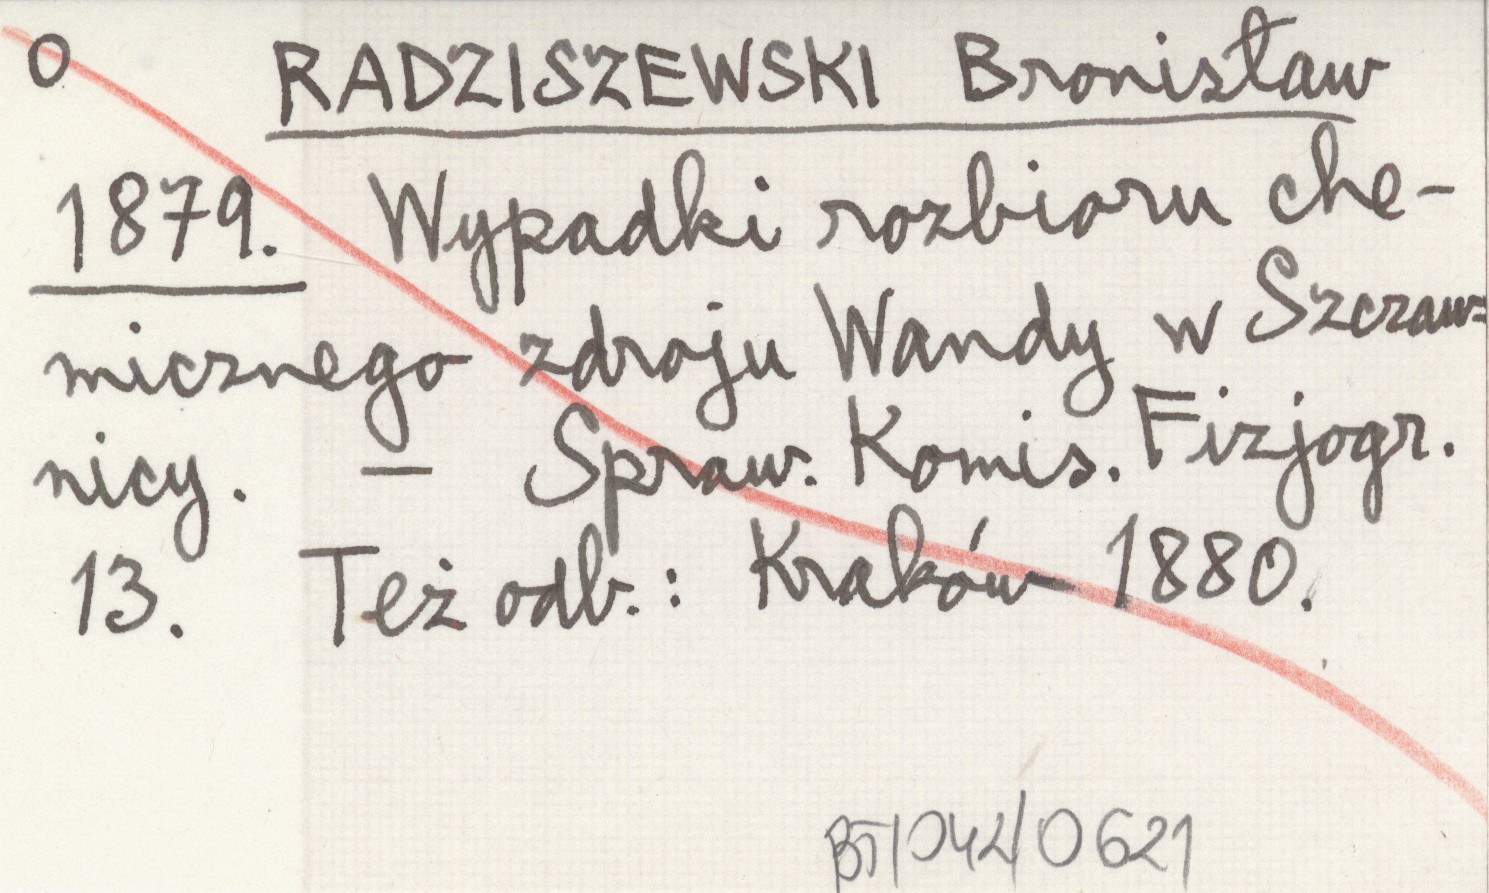 O RADZISZEWSKI Bronisław
1879. Wypadki rozbioru che-
micznego zdroju Wandy w Szczaw=
nicy. — Spraw. Komis. Fizjogr.
13. Też odb.: Kraków 1880.
BT/042/0621